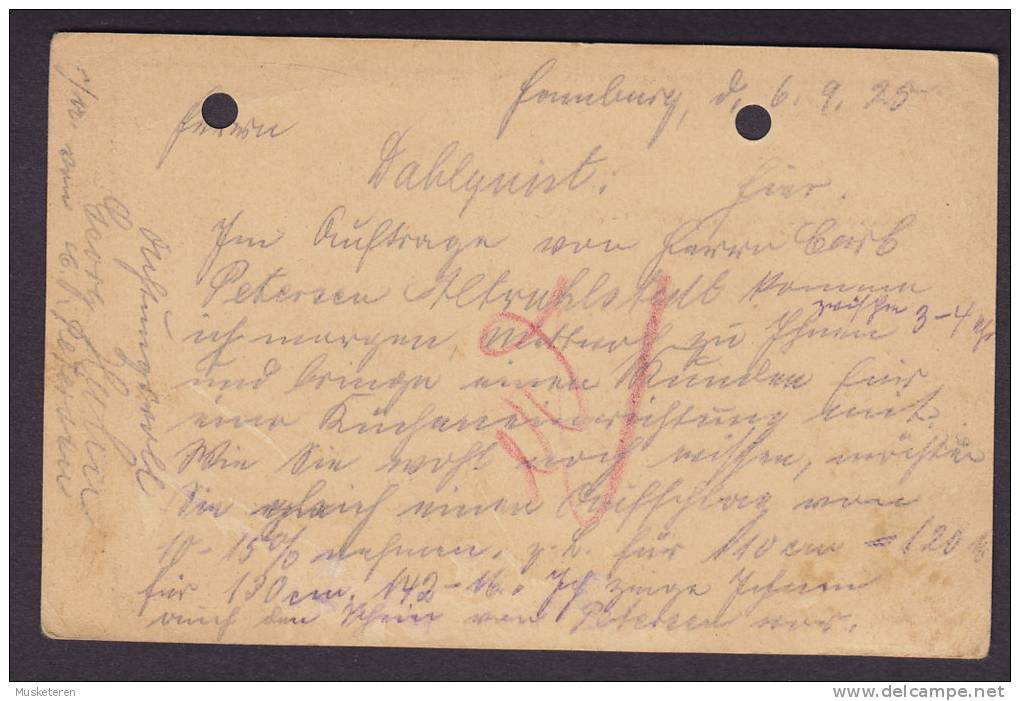 Hamburg, d. 6. 9. 25
Herrn
Dahlquist. Hier.
Im Auftrage von Herrn Carl
Petersen Altrahlstedt komme
zwischen 3-4 Uhr
ich morgen Mittwoch zu Ihnen
und bringe einen Kunden für
eine Kücheneinrichtung mit.
Wie Sie wohl noch wissen, möchten
Sie gleich einen Aufschlag von
10-15% nehmen. z. B. für 110 cm = 120 M
für 130 cm. 142 - M. Ich zeige Ihnen
auch den Schein von Petersen vor.
Achtungsvoll
Georg
i/V. von C. Petersen
Musketeren
delcampe.net